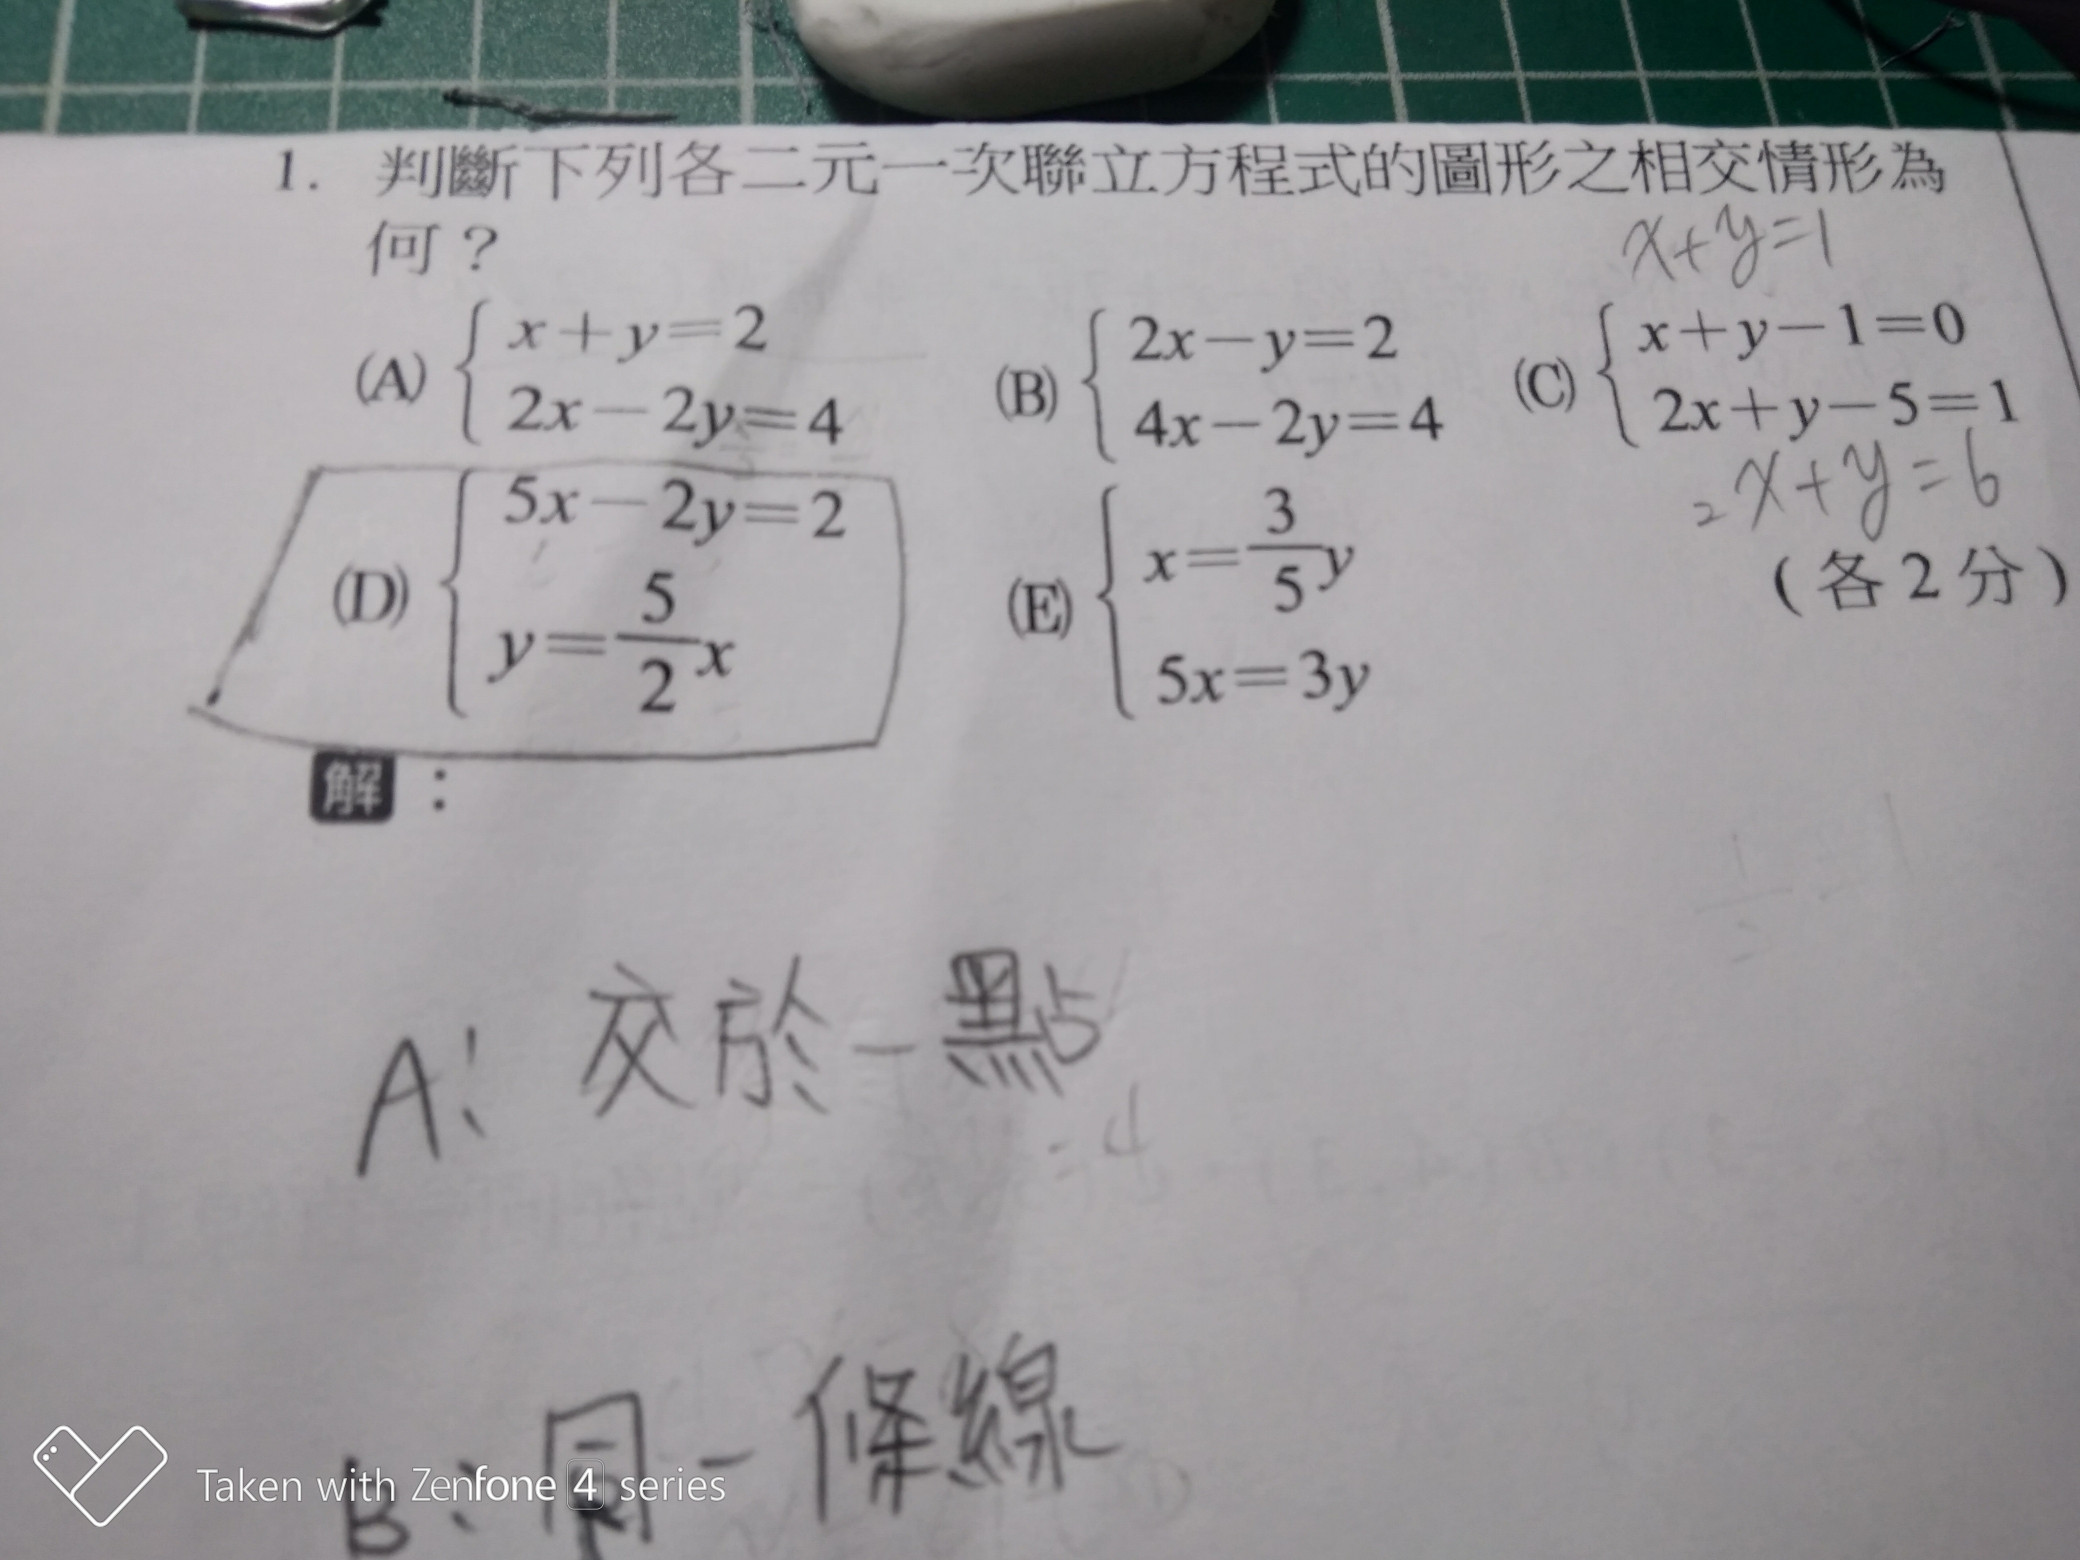 1. 判斷下列各二元一次聯立方程式的圖形之相交情形為
何？
x+y=1
(A) { x+y=2
2x-2y=4
(B) { 2x-y=2
4x-2y=4
(C) { x+y-1=0
2x+y-5=1
2x+y=6
(D) { 5x-2y=2
y=5/2x
(E) { x=3/5y
5x=3y
(各2分)
解：
A: 交於一點
=4
B: 同一條線
Taken with Zenfone 4 series